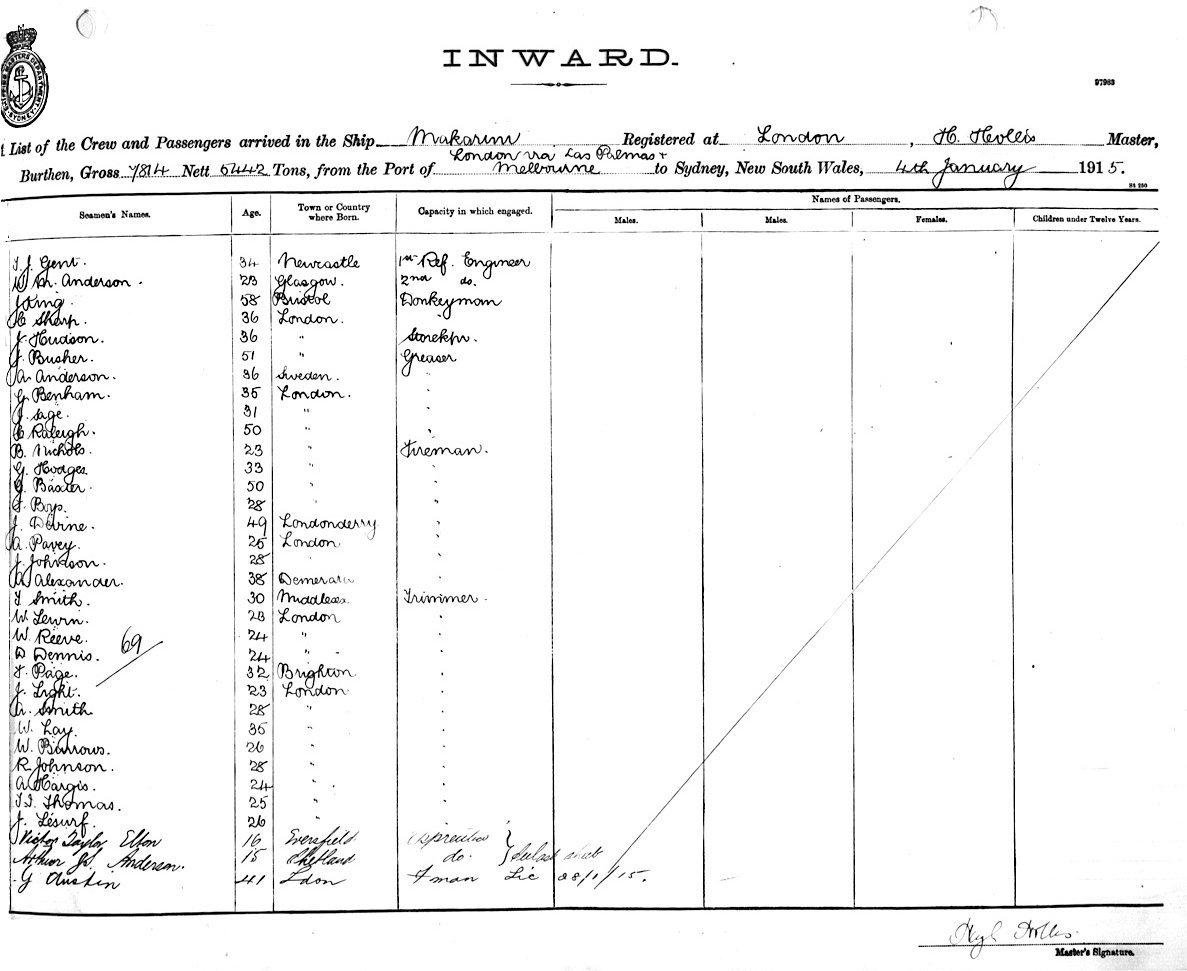 SHIPPING MASTERS DEPARTMENT SYDNEY
INWARD.
97963
List of the Crew and Passengers arrived in the Ship Makarini Registered at London, H. Hollis Master,
London via Las Palmas +
Burthen, Gross 7814 Nett 5442 Tons, from the Port of Melbourne to Sydney, New South Wales, 4th January 1915.
Seamen's Names. Age. Town or Country where Born. Capacity in which engaged. Names of Passengers.
Males. Males. Females. Children under Twelve Years.
T. J. Gent. 34 Newcastle 1st Ref. Engineer
Anderson. 23 Glasgow. 2nd do.
J. King. 58 Bristol Donkeyman
Sharp. 36 London. "
J. Hudson. 36 " Storekpr.
J. Busher. 51 " Greaser
A. Anderson. 36 Sweden. "
G. Benham. 35 London. "
Sage. 31 " "
Raleigh. 50 " "
B. Nichols. 23 " Fireman.
G. Hodges 33 " "
G. Baxter. 50 " "
Boys. 28 " "
J. Devine. 49 Londonderry "
A. Pavey. 25 London "
J. Johnson. 28 " "
Alexander. 38 Demerara "
T. Smith. 30 Middlesex Trimmer.
W. Lewin. 23 London "
W. Reeve. 24 " "
69
D. Dennis. 24 " "
F. Page. 32 Brighton "
J. Light. 23 London "
A. Smith 28 " "
W. Lay. 35 " "
W. Barrows. 26 " "
R. Johnson. 28 " "
A. Hargis. 24 " "
Thomas. 25 " "
J. Lesurf. 26 " "
Victor Taylor Elton 16 Eversfield apprentice
Arthur Anderson. 15 Shetland do.
G Austin 41 Ldon Fman Lic 28/1/15.
Hollis
Master's Signature.